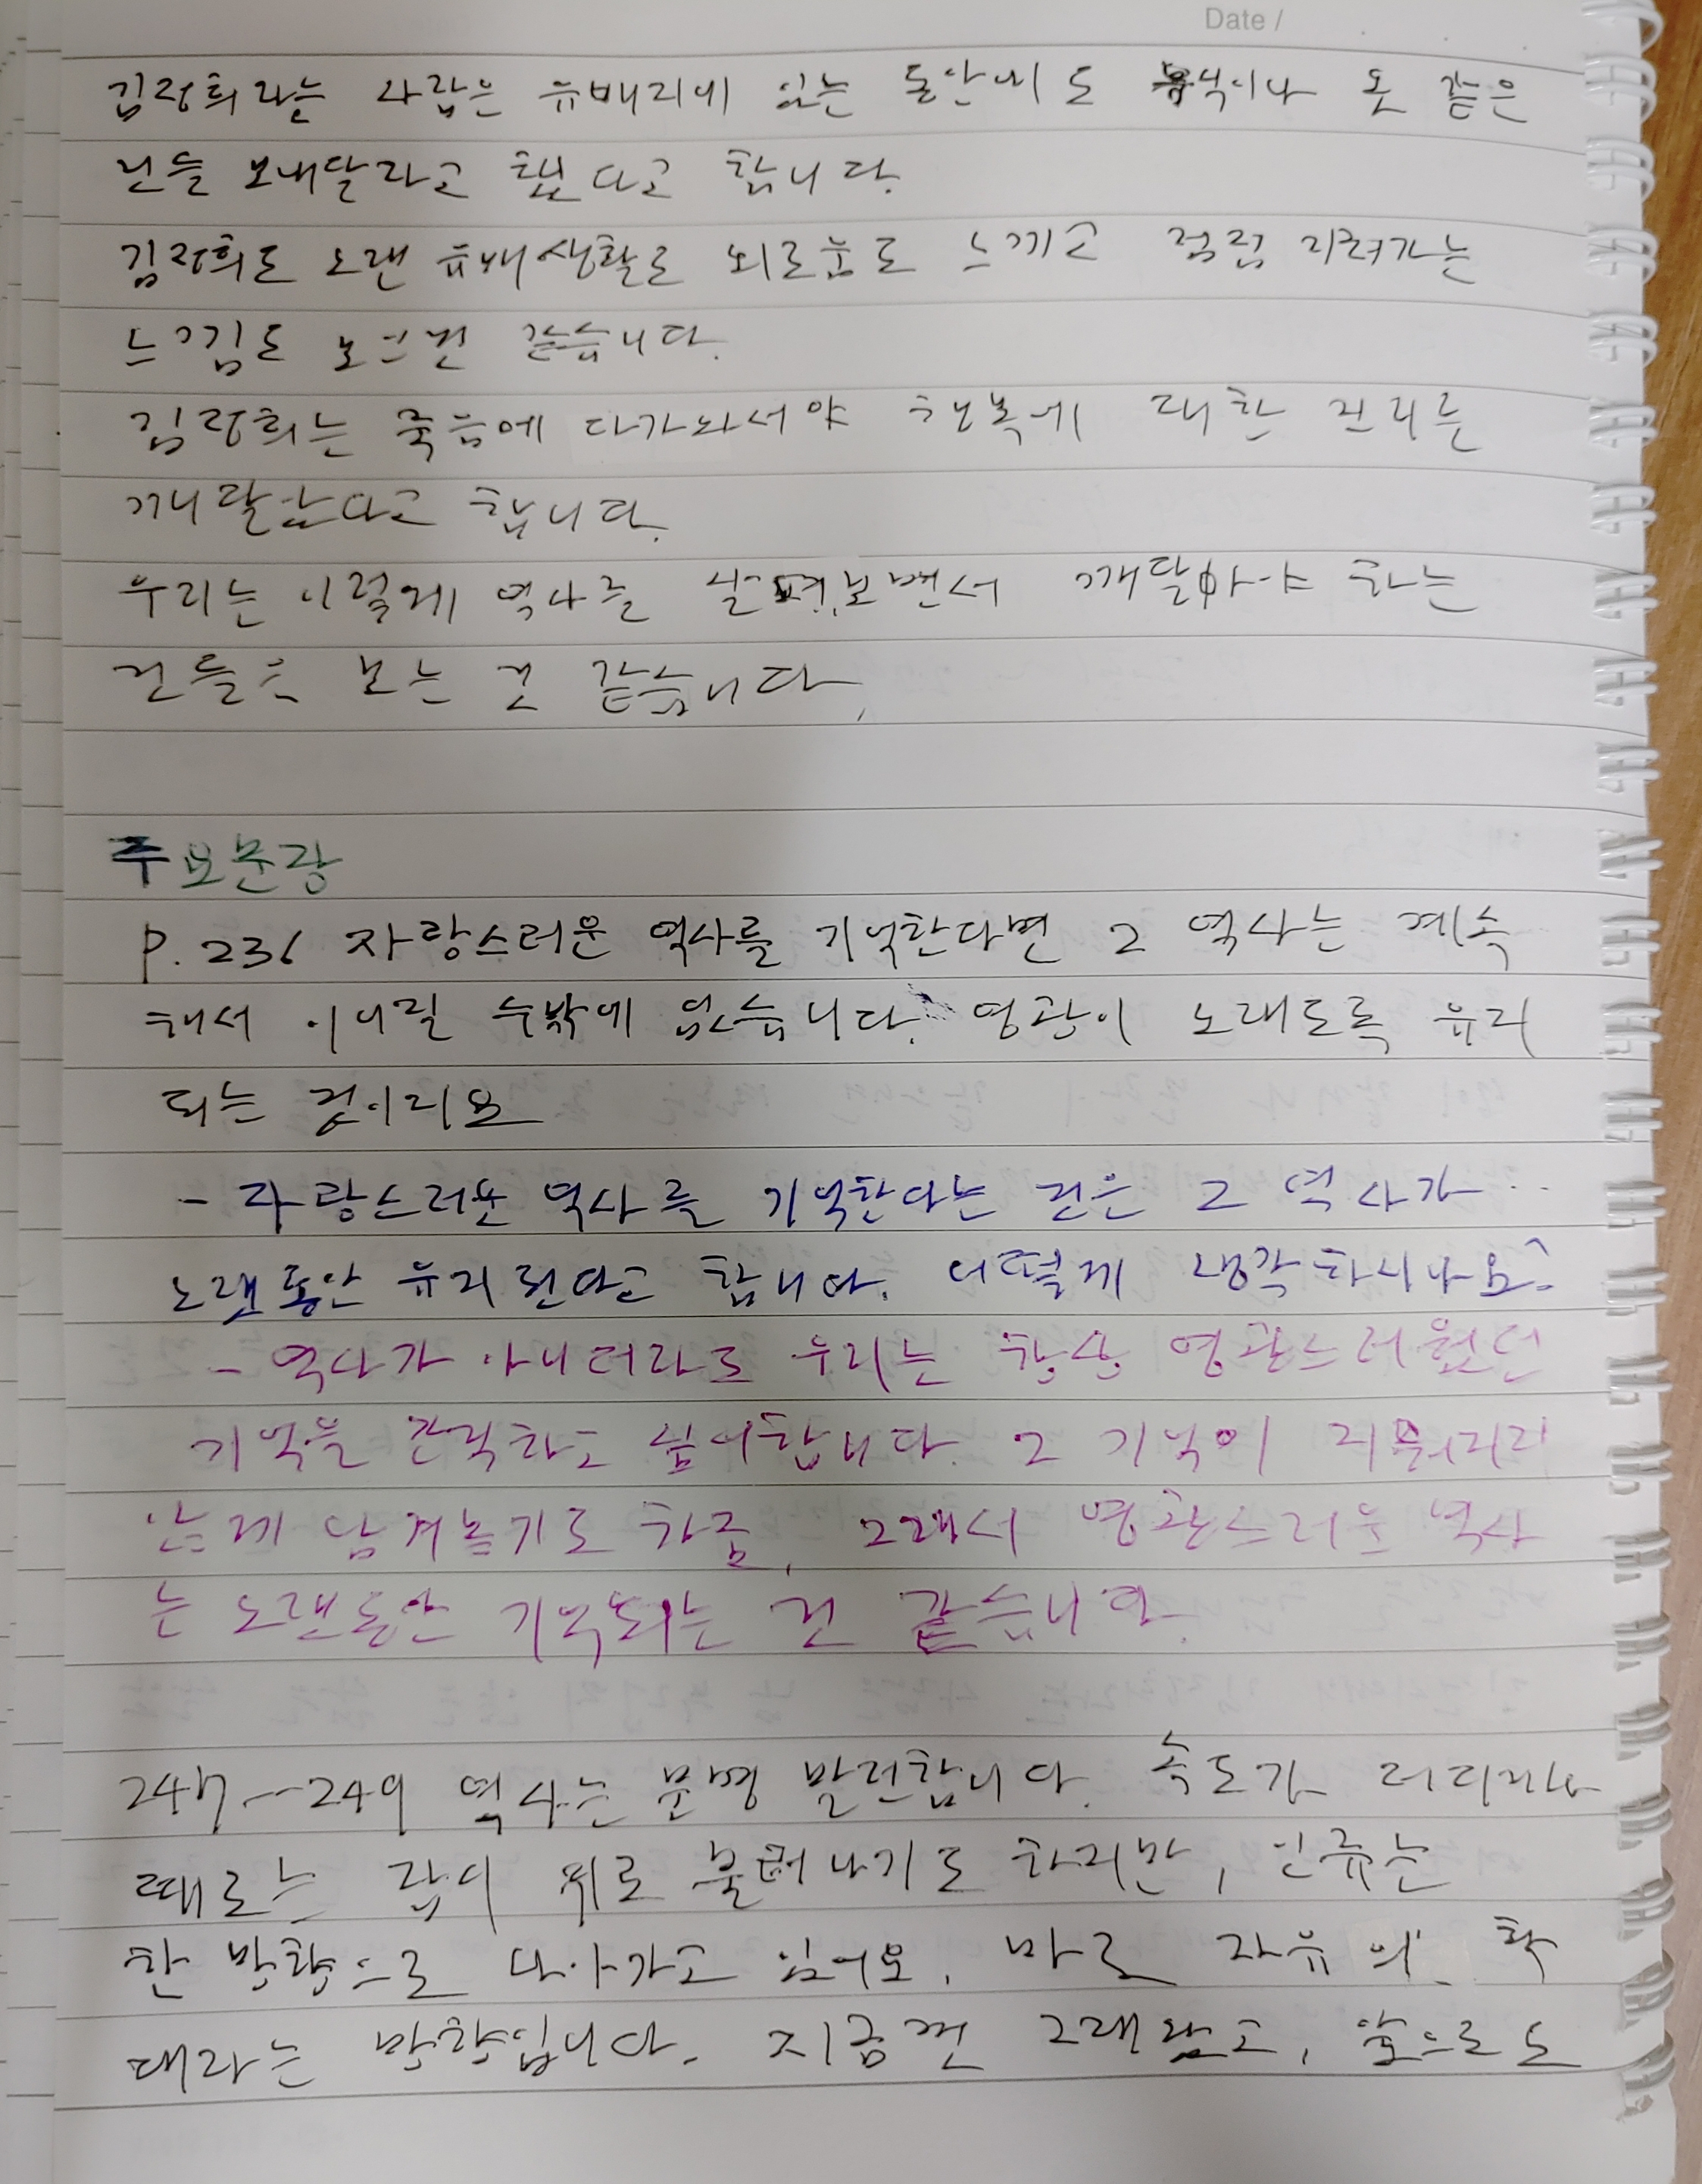 Date /
김정희라는 사람은 유배지에 있는 동안에도 음식이나 옷 같은
것들 보내달라고 했다고 합니다.
김정희도 오랜 유배생활로 외로움도 느끼고 점점 지쳐가는
느낌도 보았던 같습니다.
김정희는 죽음에 다가와서야 행복에 대한 진리를
깨달았다고 합니다.
우리는 이렇게 역사를 살펴보면서 깨달아야 하는
것들을 보는 것 같습니다.
주요문장
P. 236 자랑스러운 역사를 기억한다면 그 역사는 계속
해서 이어질 수밖에 없습니다. 영광이 오래도록 유지
되는 것이지요
- 자랑스러운 역사를 기억한다는 것은 그 역사가
오랫동안 유지된다고 합니다. 어떻게 생각하시나요?
- 역사가 아니더라도 우리는 항상 영광스러웠던
기억을 간직하고 싶어합니다. 그 기억이 지워지지
않게 남겨놓기도 하죠. 그래서 영광스러운 역사
는 오랫동안 기억되는 것 같습니다.
247-249 역사는 분명 발전합니다. 속도가 더디거나
때로는 잠시 뒤로 물러나기도 하지만, 인류는
한 방향으로 나아가고 있어요. 바로 자유의 확
대라는 방향입니다. 지금껏 그래왔고, 앞으로도